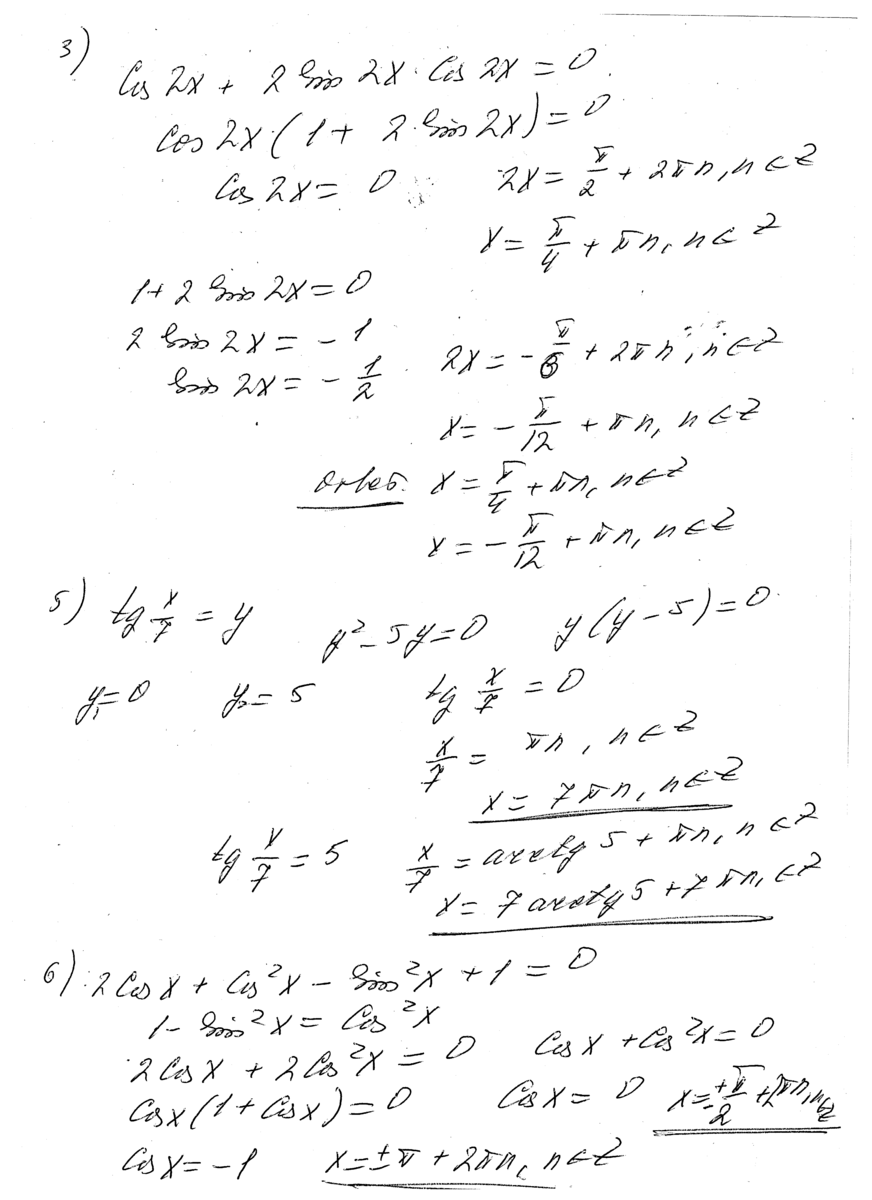 3)
Cos 2x + 2 Sin 2x · Cos 2x = 0.
Cos 2x (1 + 2 · Sin 2x) = 0
Cos 2x = 0 2x = π/2 + 2πn, n ∈ Z
x = π/4 + πn, n ∈ Z
1 + 2 Sin 2x = 0
2 Sin 2x = - 1
Sin 2x = - 1/2 2x = - π/6 + 2πn, n ∈ Z
x = - π/12 + πn, n ∈ Z
Ответ. x = π/4 + πn, n ∈ Z
x = - π/12 + πn, n ∈ Z
5) tg x/7 = y y² - 5y = 0 y (y - 5) = 0
y₁ = 0 y₂ = 5 tg x/7 = 0
x/7 = πn, n ∈ Z
x = 7πn, n ∈ Z
tg x/7 = 5 x/7 = arctg 5 + πn, n ∈ Z
x = 7 arctg 5 + 7πn, ∈ Z
6) 2 Cos x + Cos²x - Sin²x + 1 = 0
1 - Sin²x = Cos²x
2 Cos x + 2 Cos²x = 0 Cos x + Cos²x = 0
Cos x (1 + Cos x) = 0 Cos x = 0 x = ± π/2 + 2πn, n ∈ Z
Cos x = - 1 x = ± π + 2πn, n ∈ Z